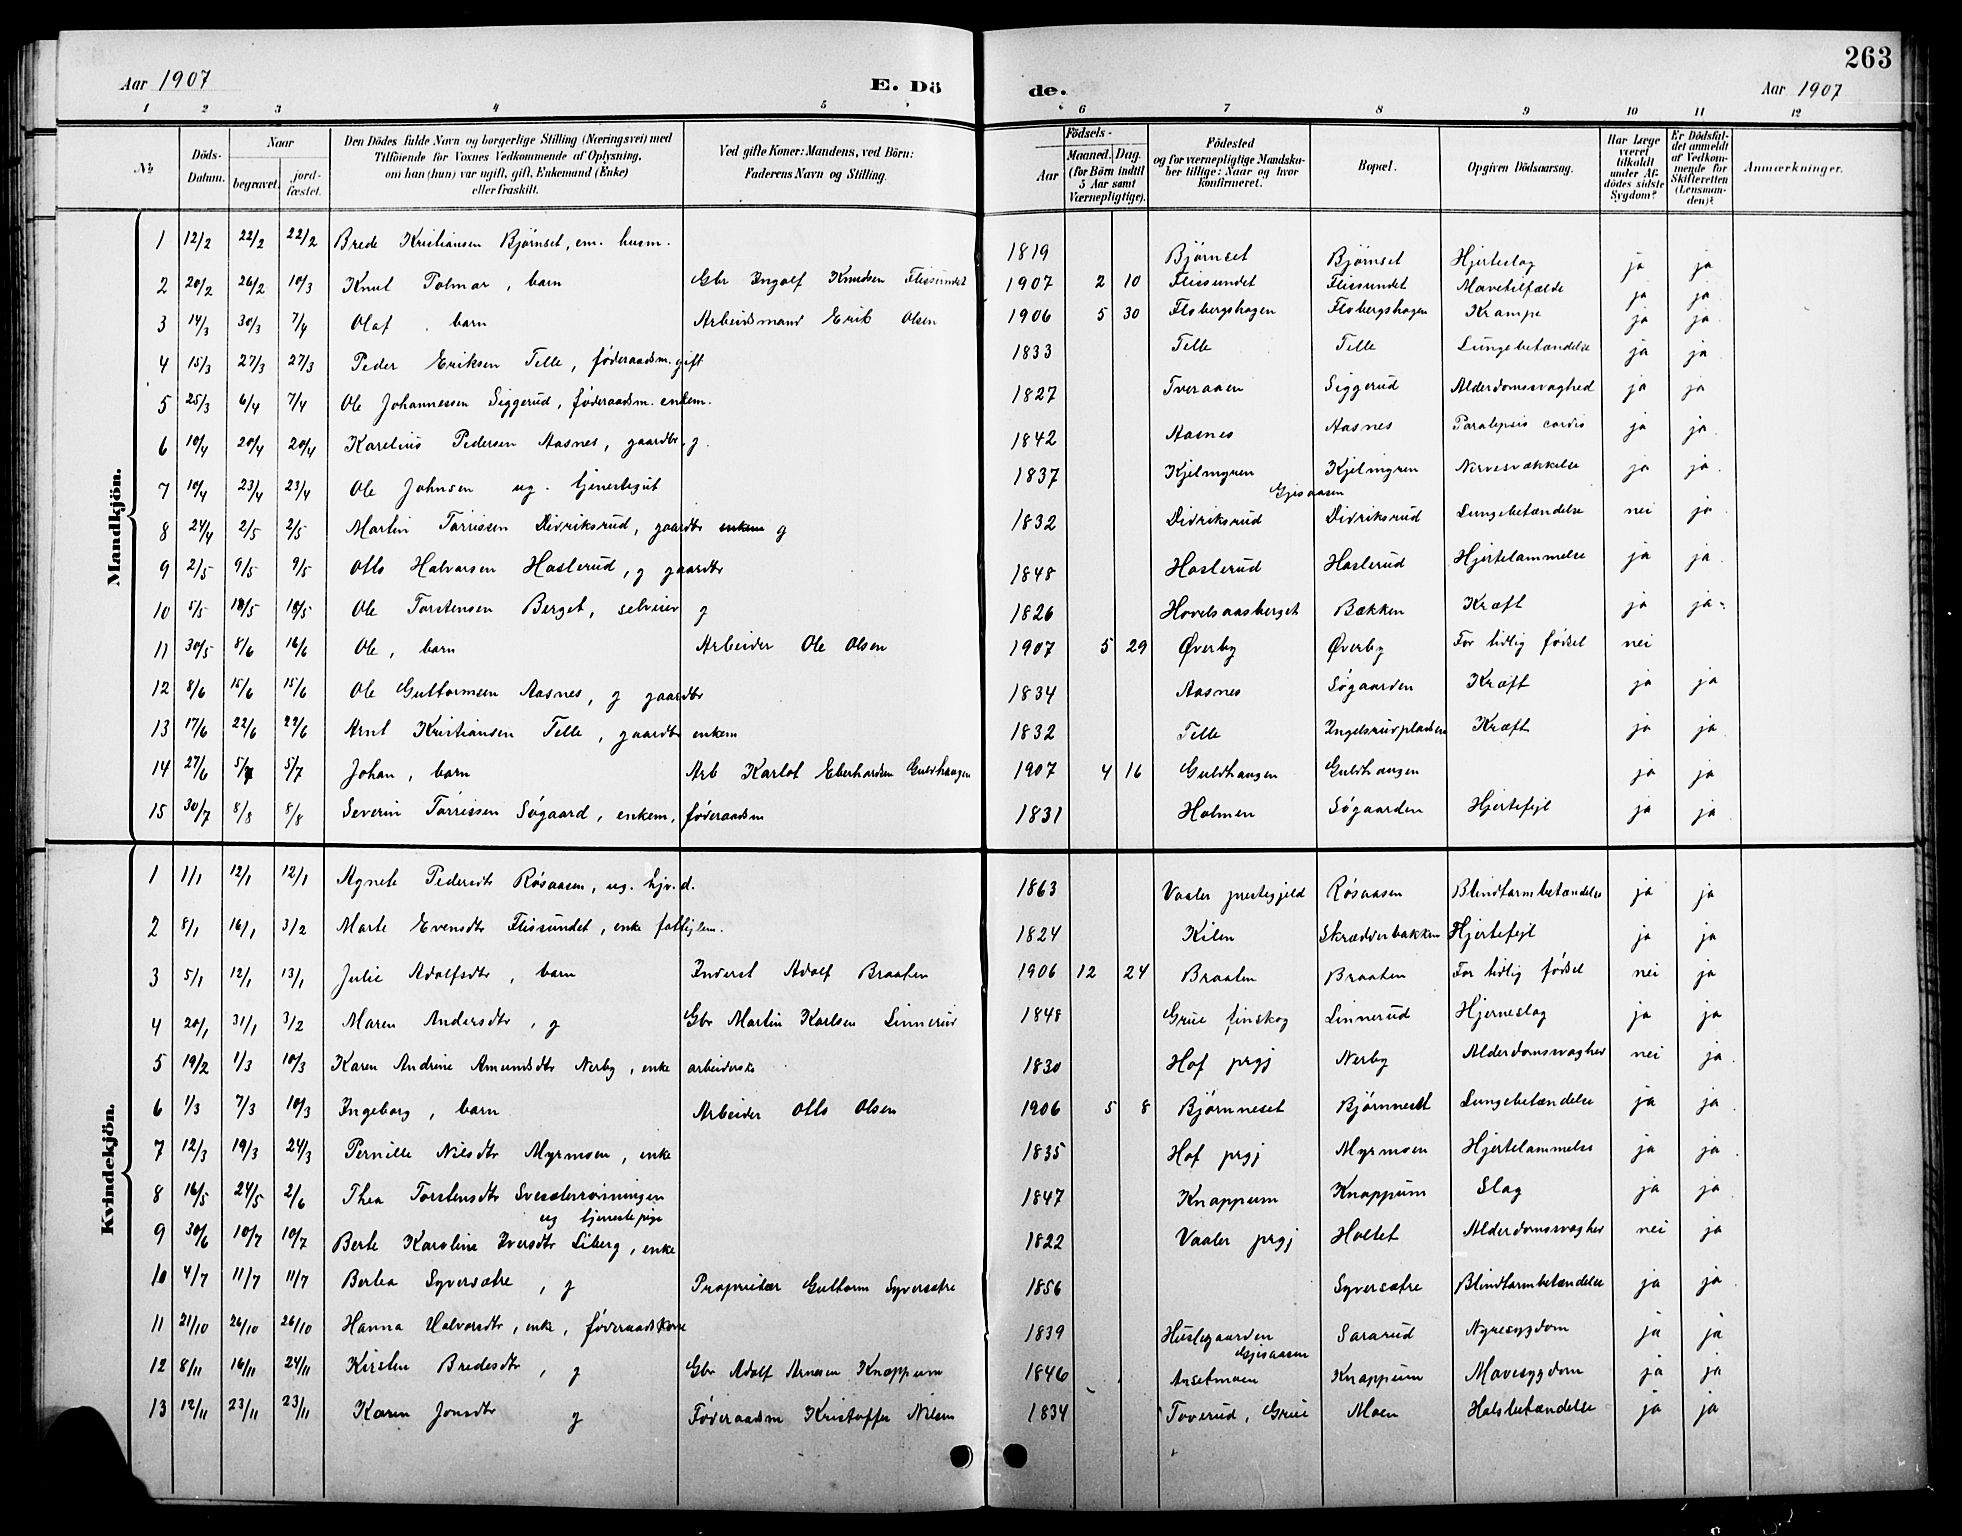 263
Aar 1907 E. Dö de. Aar 1907
1 2 3 4 5 6 7 8 9 10 11 12
No. Döds-Datum. Naar begravet. jordfæstet. Den Dödes fulde Navn og borgerlige Stilling (Næringsvei) med Tilföiende for Voxnes Vedkommende af Oplysning, om han (hun) var ugift, gift, Enkemand (Enke) eller fraskilt. Ved gifte Koner: Mandens, ved Börn: Faderens Navn og Stilling. Födsels- Aar Maaned. Dag. (for Börn indtil 5 Aar samt Værnepligtige). Födested og for værnepligtige Mandskaber tillige: Naar og hvor konfirmeret. Bopæl. Opgiven Dödsaarsag. Har Læge været tilkaldt under Afdödes sidste Sygdom? Er Dödsfaldet anmeldt af Vedkommende for Skifteretten (Lensmanden)? Anmærkninger.
Mandkjön.
1 12/2 22/2 22/2 Brede Kristiansen Bjørnset, em. husm. 1819 Bjørnset Bjørnset Hjerteslag ja ja
2 20/2 26/2 10/3 Knut Tolmar, barn Gbr Ingolf Knudsen Flissundet 1907 2 10 Flissundet Flissundet Mavetilfælde ja ja
3 14/3 30/3 7/4 Olaf, barn Arbeidsmand Erik Olsen 1906 5 30 Flobergshagen Flobergshagen Krampe ja ja
4 15/3 27/3 27/3 Peder Eriksen Telle, føderaadsm. gift 1833 Telle Telle Lungebetændelse ja ja
5 25/3 6/4 7/4 Ole Johannessen Siggerud, føderaadsm. enkem. 1827 Tveraaen Siggerud Alderdomssvaghed ja ja
6 10/4 20/4 20/4 Karelius Pedersen Aasnes, gaardbr, g. 1842 Aasnes Aasnes Paralepsis cordis ja ja
7 10/4 23/4 23/4 Ole Johnsen ug. tjenestegut 1837 Kjelmyren Kjelmyren Nervesvækkelse ja ja
8 24/4 2/5 2/5 Martin Tørrissen Didriksrud, gaardbr enkem g 1832 Didriksrud Gjesaasen Didriksrud Lungebetændelse nei ja
9 2/5 9/5 9/5 Otto Halvorsen Haslerud, g gaardbr 1848 Haslerud Haslerud Hjertelammelse ja ja
10 5/5 18/5 18/5 Ole Torstensen Berget, selveier g 1826 Hovelsaasberget Bækken Kræft ja ja
11 30/5 8/6 16/6 Ole, barn Arbeider Ole Olsen 1907 5 29 Øverby Øverby For tidlig fødsel nei
12 8/6 15/6 15/6 Ole Guttormsen Aasnes, g gaardbr 1834 Aasnes Søgaarden Kræft ja ja
13 17/6 22/6 22/6 Arnt Kristiansen Telle, gaardbr enkem 1832 Telle Ingelsrudpladsen Kræft ja ja
14 27/6 5/7 5/7 Johan, barn Arb Karlof Eberhardsen Guldhaugen 1907 4 16 Guldhaugen Guldhaugen ja ja
15 30/7 8/8 8/8 Severin Tørrissen Søgaard, enkem, føderaadsm 1831 Holmen Søgaarden Hjertefejl ja ja
Kvindekjön.
1 1/1 12/1 12/1 Agnete Pedersdtr Røsaasen, ug. hjv. d. 1863 Vaaler prestegjeld Røsaasen Blindtarmbetændelse ja ja
2 8/1 16/1 3/2 Marte Evensdtr Flissundet, enke fattiglem. 1824 Kilen Skrædderbakken Hjertefejl ja ja
3 5/1 12/1 13/1 Julie Adolfsdtr, barn Inderst Adolf Braaten 1906 12 24 Braaten Braaten For tidlig fødsel nei ja
4 20/1 31/1 3/2 Maren Andersdtr, g Gbr Martin Karlsen Linnerud 1848 Grue finskog Linnerud Hjerneslag ja ja
5 19/2 1/3 10/3 Karen Andrine Amundsdtr Nerby, enke arbeiderske 1830 Hof prgj Nerby Alderdomssvaghed nei ja
6 1/3 7/3 10/3 Ingeborg, barn Arbeider Otto Olsen 1906 5 8 Bjørnneset Bjørnneset Lungebetændelse ja ja
7 12/3 19/3 24/3 Pernille Nilsdtr Myrmoen, enke 1835 Hof prgj Myrmoen Hjertelammelse ja ja
8 16/5 24/5 2/6 Thea Torstensdtr Svesæterrønningen ug tjenestepige 1847 Knappum Knappum Slag ja ja
9 30/6 10/7 10/7 Berte Karoline Iversdtr Liberg, enke 1822 Vaaler prgj Holtet Alderdomssvaghed nei ja
10 4/7 11/7 11/7 Bertea Syversætre, g Proprietær Guttorm Syversætre 1856 Syversætre Blindtarmbetændelse ja ja
11 21/10 26/10 26/10 Hanna Halvorsdtr, enke, føderaadskone 1839 Huslegaarden Gjesaasen Sararud Nyresygdom ja ja
12 8/11 16/11 24/11 Kirsten Bredesdtr, g Gbr Adolf Arnesen Knappum 1846 Ansetmoen Knappum Mavesygdom ja ja
13 12/11 23/11 23/11 Karen Jonsdtr g Føderaadsm Kristoffer Nilsen 1834 Toverud, Grue Moen Halsbetændelse ja ja